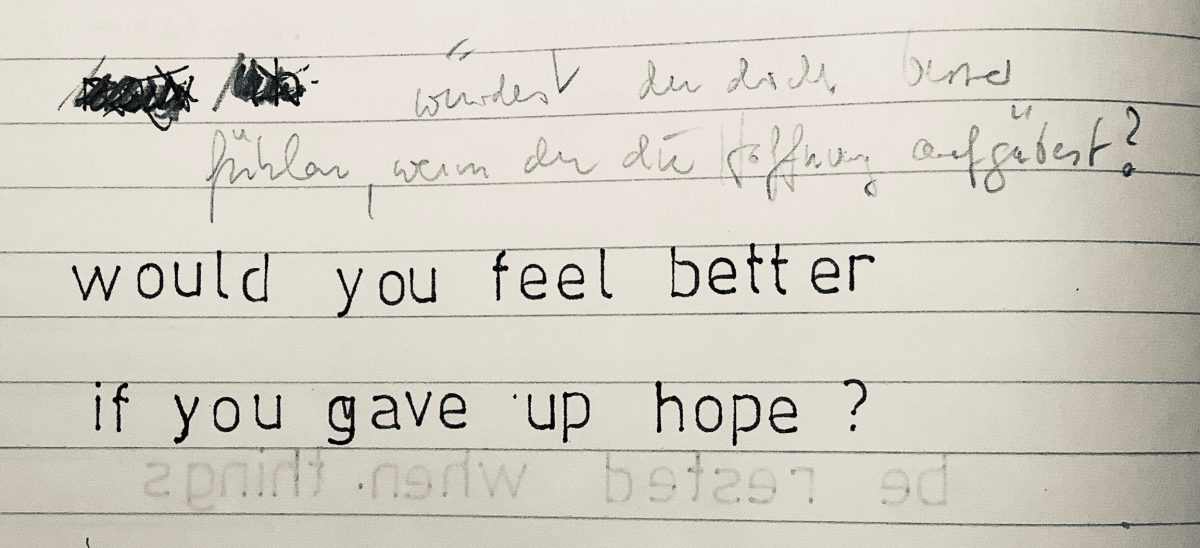 würdest du dich besser
fühlen, wenn du die Hoffnung aufgäbest?
would you feel better
if you gave up hope ?
be rested when things